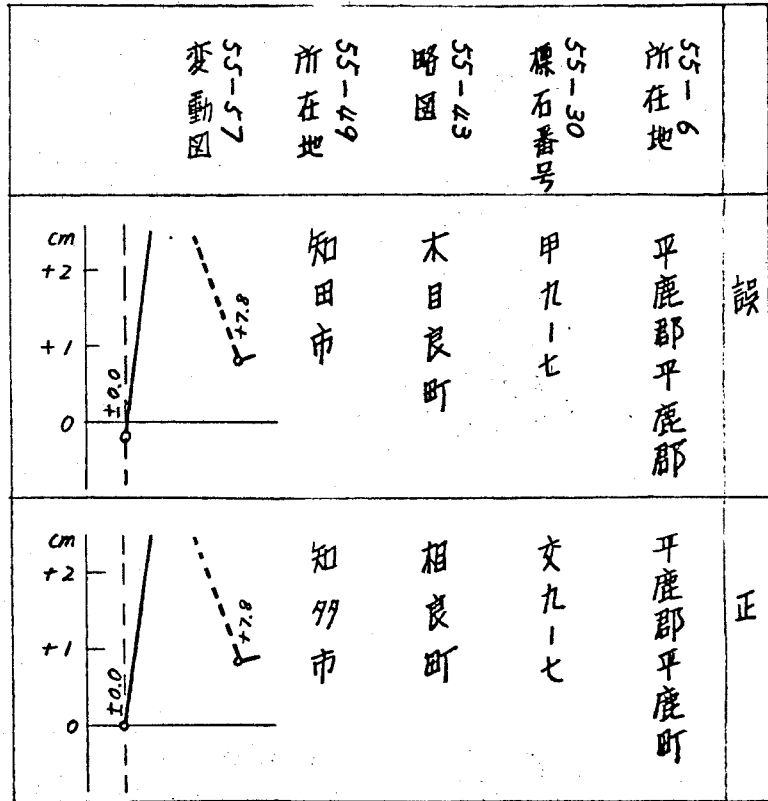 誤
正
55-6
所在地
平鹿郡平鹿郡
平鹿郡平鹿町
55-30
標石番号
甲九-七
交九-七
55-43
略図
木目良町
相良町
55-49
所在地
知田市
知多市
55-57
変動図
cm
+2
+1
0
±0.0
+7.8
cm
+2
+1
0
±0.0
+7.8